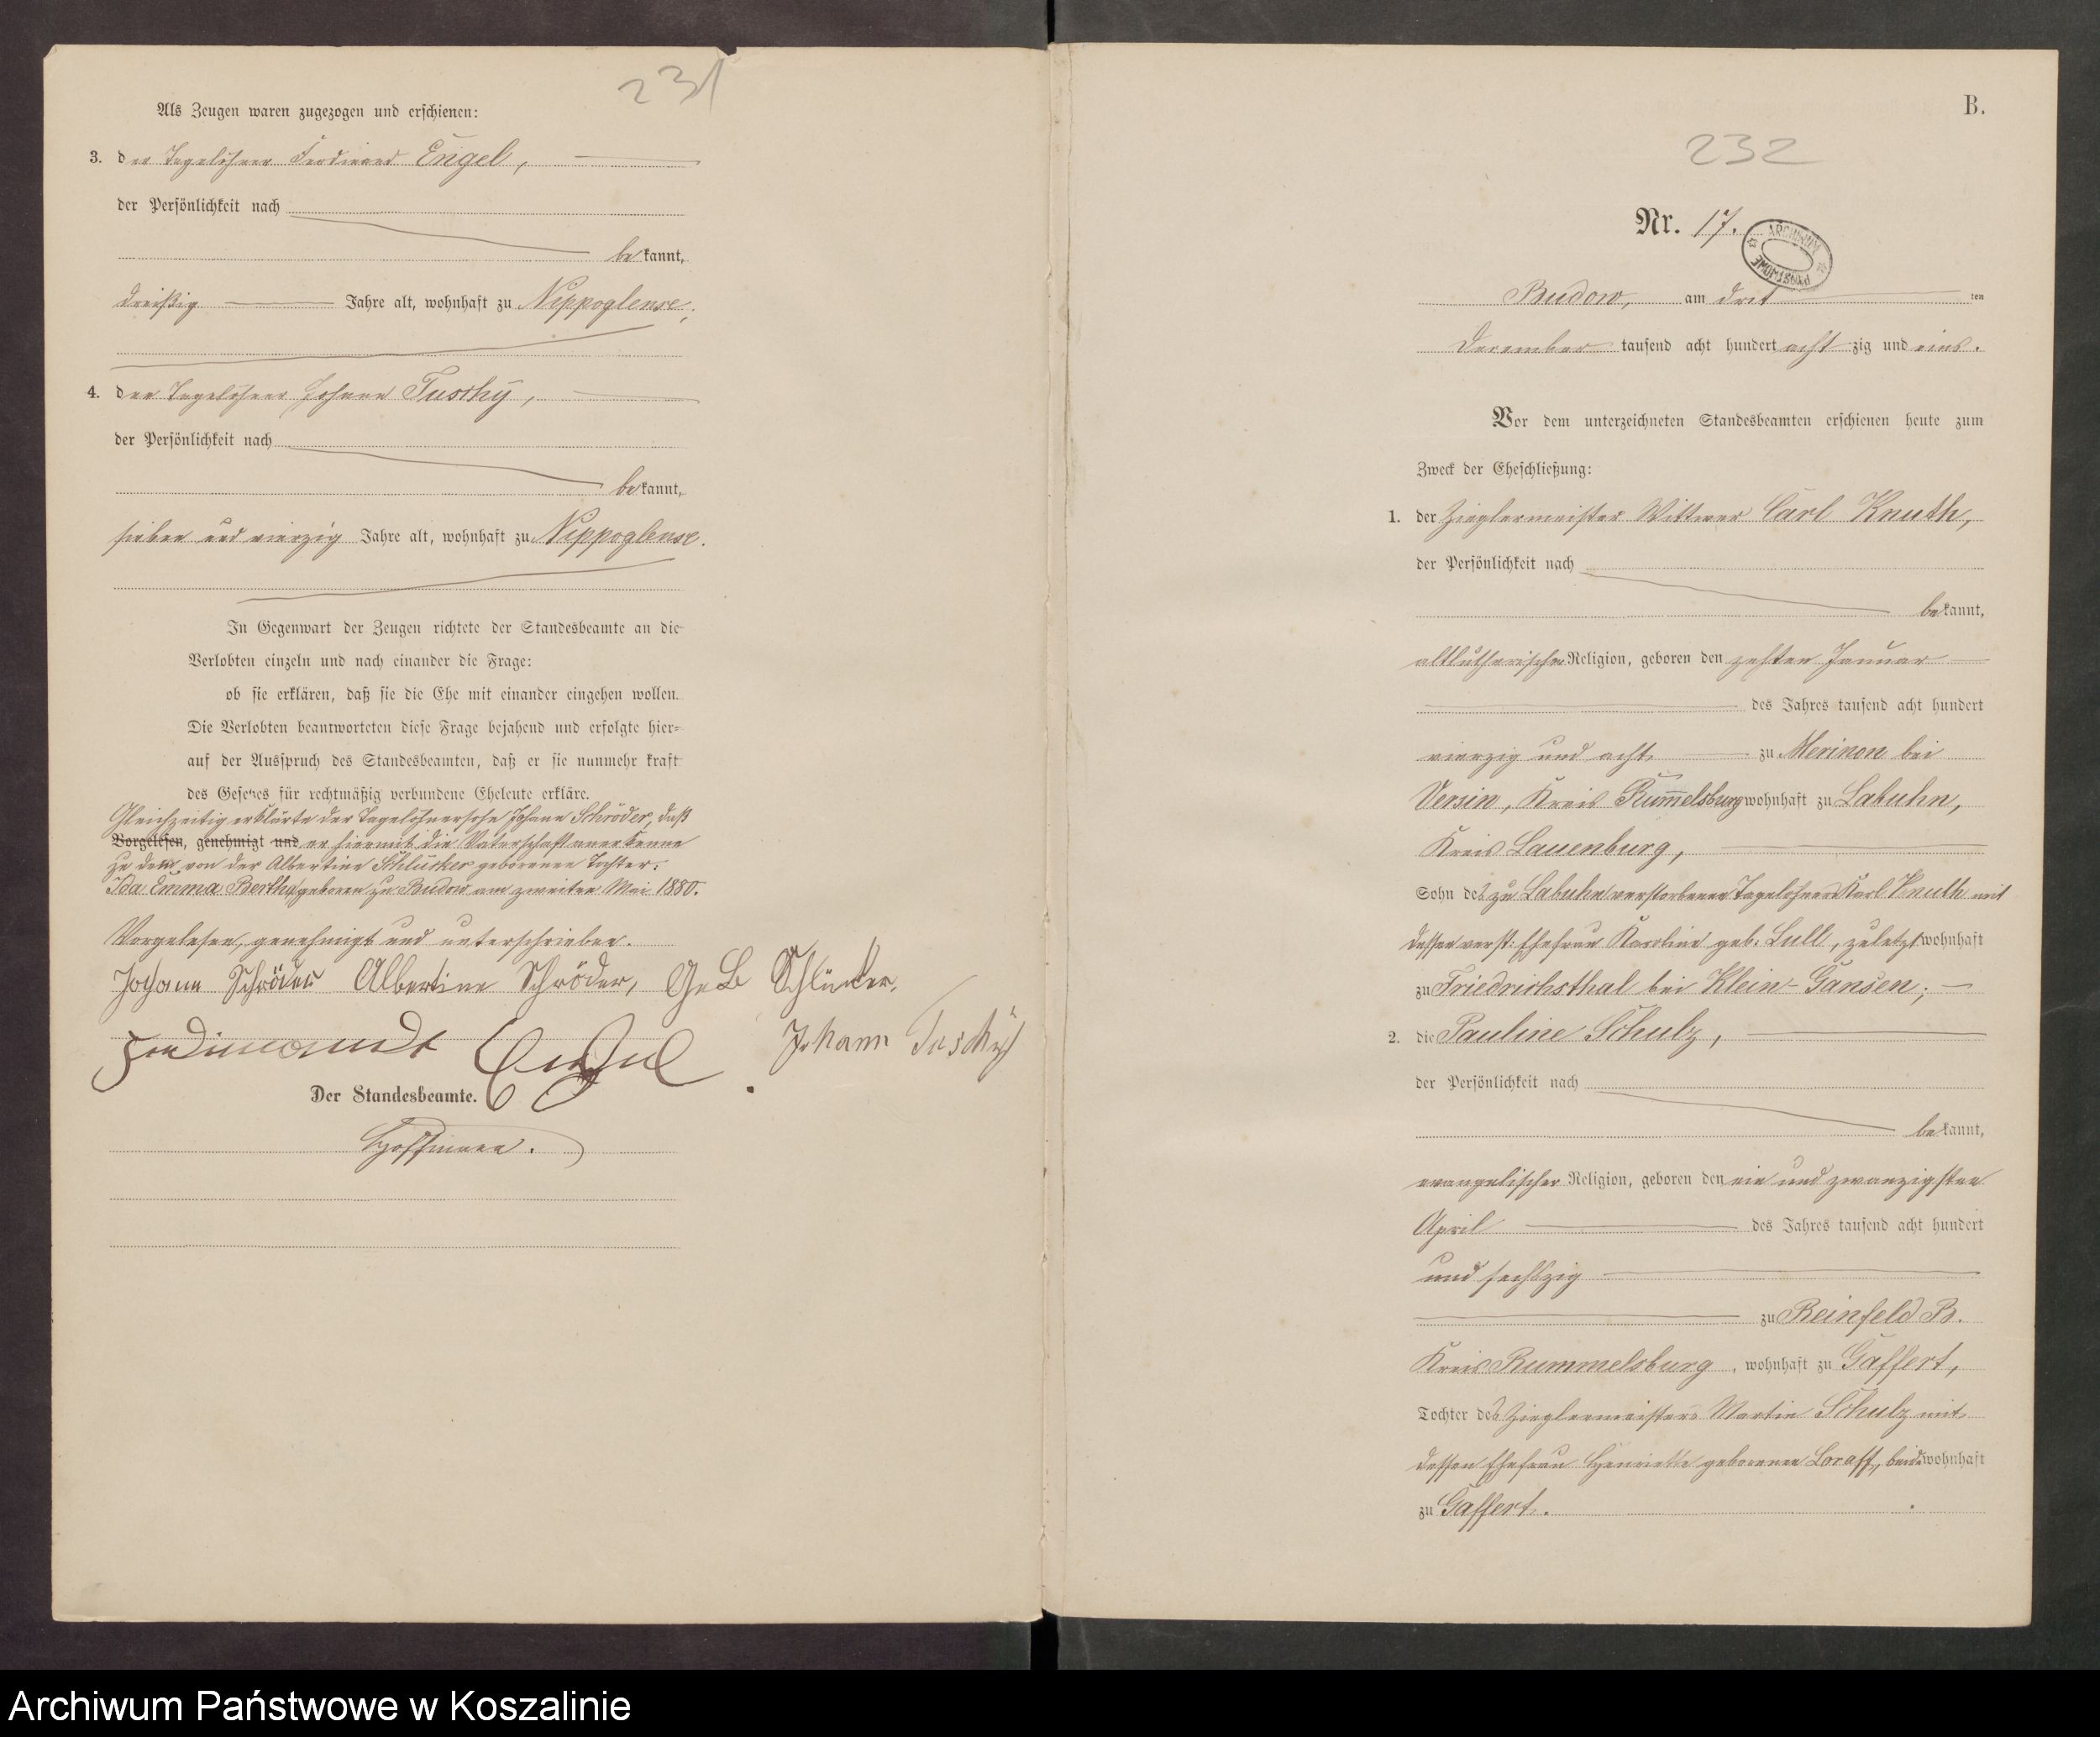 231
Als Zeugen waren zugezogen und erschienen:
3. der Tagelöhner Ferdinand Engel,
der Persönlichkeit nach
bekannt,
dreißig Jahre alt, wohnhaft zu Nippoglense;
4. der Tagelöhner Johann Tuschy,
der Persönlichkeit nach
bekannt,
sieben und vierzig Jahre alt, wohnhaft zu Nippoglense.
In Gegenwart der Zeugen richtete der Standesbeamte an die
Verlobten einzeln und nach einander die Frage:
ob sie erklären, daß sie die Ehe mit einander eingehen wollen.
Die Verlobten beantworteten diese Frage bejahend und erfolgte hier-
auf der Ausspruch des Standesbeamten, daß er sie nunmehr kraft
des Gesetzes für rechtmäßig verbundene Eheleute erkläre.
Gleichzeitig erklärte der Tagelöhnersohn Johann Schröder, daß
Vorgelesen, genehmigt und er hiermit die Vaterschaft anerkenne
zu der von der Albertine Schlücker geborenen Tochter:
Ida Emma Bertha geboren zu Budow am zweiten Mai 1880.
Vorgelesen, genehmigt und unterschrieben.
Johann Schröder Albertine Schröder, GeB Schlücker,
Ferdinandt Engel Johann Tuschy
Der Standesbeamte.
Hoffmann.
B.
232
Nr. 17.
ARCHIWUM PAŃSTWOWE
Budow, am drit ten
December tausend acht hundert acht zig und eins.
Vor dem unterzeichneten Standesbeamten erschienen heute zum
Zweck der Eheschließung:
1. der Zieglermeister Wittwer Carl Knuth,
der Persönlichkeit nach
bekannt,
altlutherischer Religion, geboren den zehten Januar
des Jahres tausend acht hundert
vierzig und acht zu Merinon bei
Versin, Kreis Rummelsburg wohnhaft zu Labuhn,
Kreis Lauenburg,
Sohn des zu Labuhn verstorbenen Tagelöhners Karl Knuth und
dessen verst. Ehefrau Karoline geb. Lull, zuletzt wohnhaft
zu Friedrichsthal bei Klein-Gansen;
2. die Pauline Schulz,
der Persönlichkeit nach
bekannt,
evangelischer Religion, geboren den ein und zwanzigsten
April des Jahres tausend acht hundert
und sechszig
zu Reinfeld B.
Kreis Rummelsburg, wohnhaft zu Gaffert,
Tochter des Zieglermeisters Martin Schulz und
dessen Ehefrau Henriette geborenen Loraff, beide wohnhaft
zu Gaffert.
Archiwum Państwowe w Koszalinie